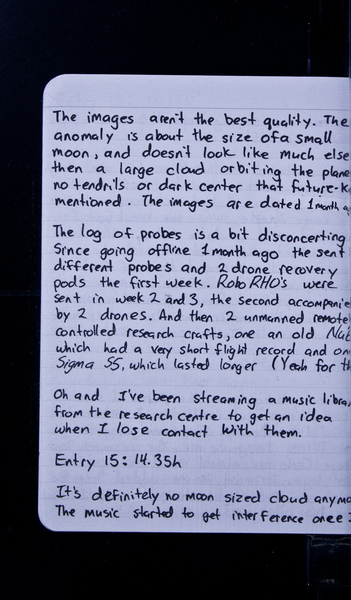 The images aren't the best quality. The
anomaly is about the size ofa small
moon, and doesn't look like much else
then a large cloud orbiting the plane
no tendrils or dark center that future-k
mentioned. The images are dated 1month a
The log of probes is a bit disconcerting
Since going offline 1month ago the sent
different probes and 2 drone recovery
pods the first week. Robo RHO's were
sent in week 2 and 3, the second accompanie
by 2 drones. And then 2 unmanned remote
controlled research crafts, one an old
which had a very short flight record and on
Sigma SS, which lasted longer (Yeah for th
Oh and I've been streaming a music libra
from the research centre to get an idea
when I lose contact with them.
Entry 15: 14.35h
It's definitely no moon sized cloud anymo
The music started to get interference once